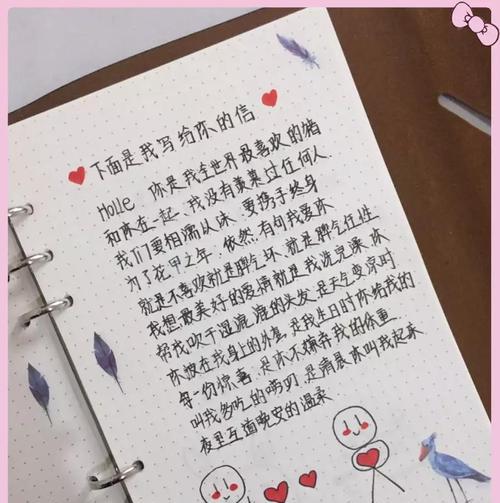 下面是我写给你的信
Holle 你是我全世界最喜欢的猪
和你在一起、我没有羡慕过任何人
我们要相濡以沫 要携手终身
为了花甲之年 依然有句我爱你
就是不喜欢就是脾气坏、就是脾气任性
我想最美好的爱情就是我洗完澡 你
帮我吹干湿漉漉的头发.是天气变凉时
你披在我身上的外套.是我生日时你给我的
每一份惊喜.是你不嫌弃我的体重
叫我多吃的唠叨.是清晨你叫我起床
夜里互道晚安的温柔